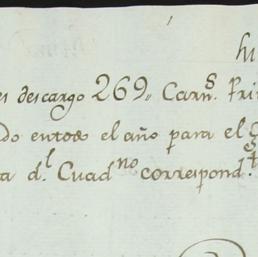 es descargo 269,, Carn.s Pri
do entoo el año para el
a d.l Cuad.no correspond.te